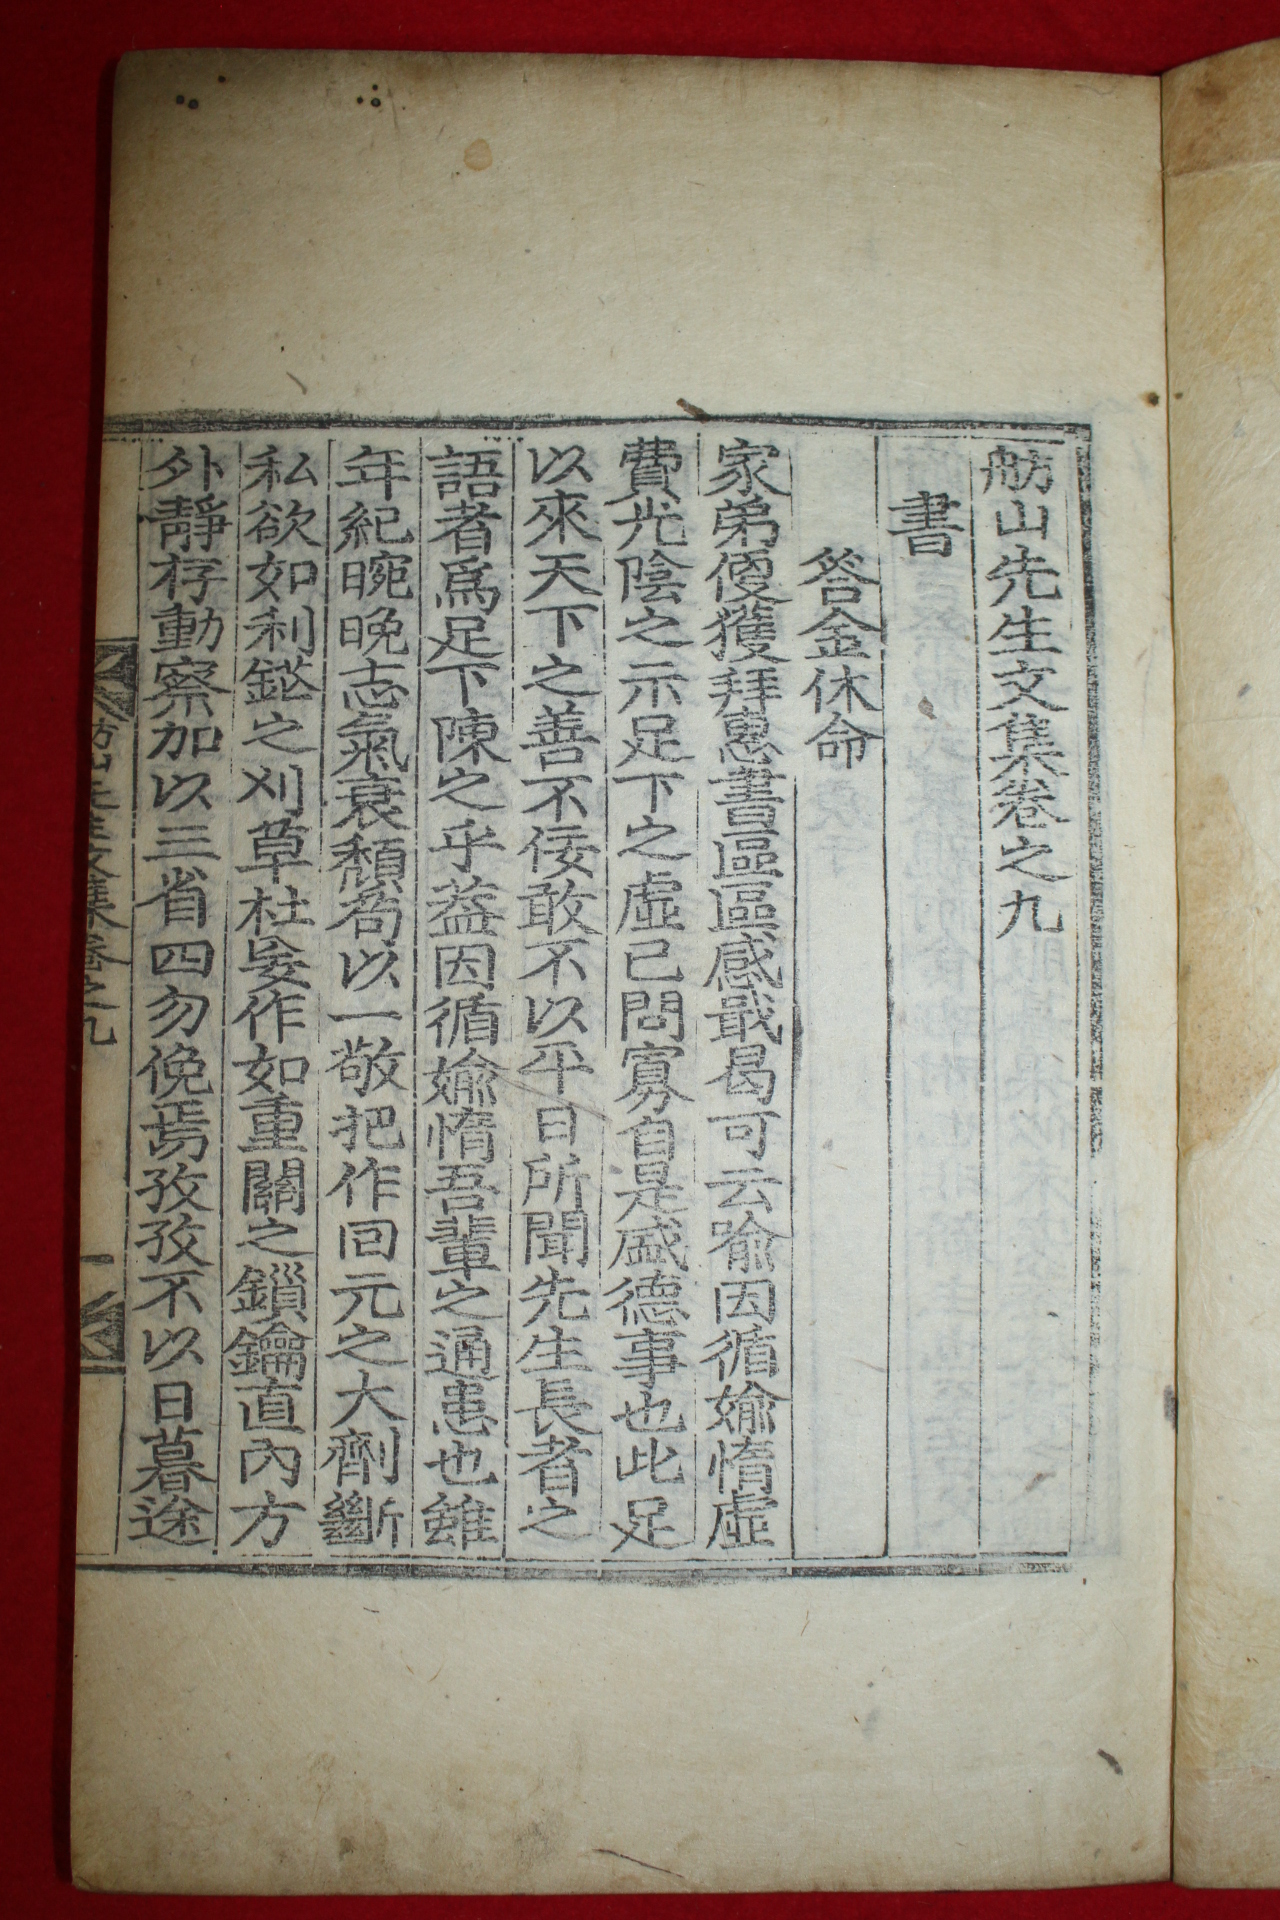 舫山先生文集卷之九
書
答金休命
家弟便獲拜惠書區區感戢曷可云喩因循媮惰虛
費光陰之示足下之虛己問寡自是盛德事也此足
以來天下之善不佞敢不以平日所聞先生長者之
語者爲足下陳之乎葢因循媮惰吾輩之通患也雖
年紀晼晚志氣衰頹苟以一敬把作回元之大劑斷
私欲如利鎌之刈草杜妄作如重關之鎖鑰直內方
外靜存動察加以三省四勿俛焉孜孜不以日暮途
舫山先生文集卷之九
一